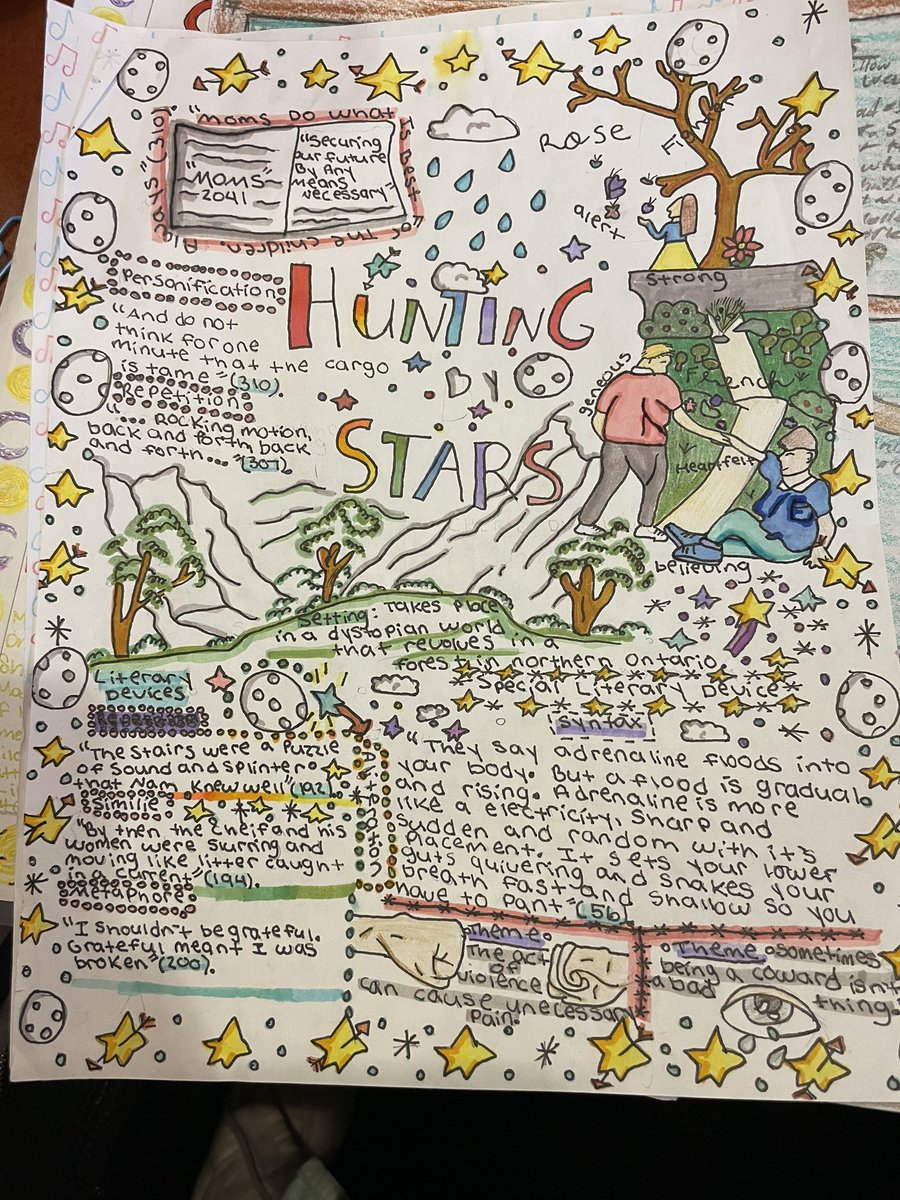 "Moms Do what
Is best
For The children. Always" (310).
"Moms"
2041
"Securing
our future
By Any
means
necessary"
Rose
alert
Fi
Strong
HUNTING
by
STARS
Personification
"And do not
think for one
minute that the cargo
is tame" (310).
Repetition
"... Rocking motion,
back and forth, back
and forth..." (307)
generous
Frenchy
Heartfelt
believing
Setting: Takes place
in a dystopian world
that revolves in a
forest in northern Ontario.
Literary
Devices
"The Stairs were a puzzle
of sound and splinter
that Nam Knew well" (192)
Similie
"By then the Cheif and his
women were slurring and
moving like litter caught
in a current" (194).
Metaphore
"I shouldn't be grateful.
Grateful meant I was
broken" (200).
*Special Literary Device*
Syntax
"They say adrenaline floods into
your body. But a flood is gradual
and rising. Adrenaline is more
like a electricity, sharp and
sudden and random with it's
placement. It sets your lower
guts quivering and snakes your
breath fast and shallow so you
have to pant" (56)
Theme:
The act
of
violence
can cause unecessary
Pain.
Theme: sometimes
being a coward isn't
a bad
thing.